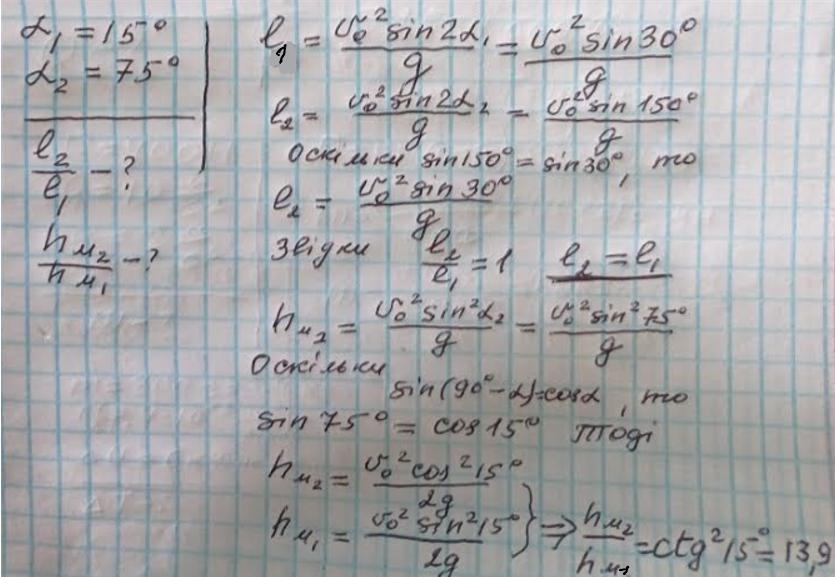 α₁ = 15°
α₂ = 75°
l₂/l₁ - ?
hм₂/hм₁ - ?
l₁ = v₀² sin 2α₁/g = v₀² sin 30°/g
l₂ = v₀² sin 2α₂/g = v₀² sin 150°/g
Оскільки sin 150° = sin 30°, то
l₂ = v₀² sin 30°/g
Звідки l₂/l₁ = 1 l₂ = l₁
hм₂ = v₀² sin² α₂/g = v₀² sin² 75°/g
Оскільки
sin(90° - α) = cos α, то
sin 75° = cos 15° Тоді
hм₂ = v₀² cos² 15°/2g
hм₁ = v₀² sin² 15°/2g } ⇒ hм₂/hм₁ = ctg² 15° = 13,9